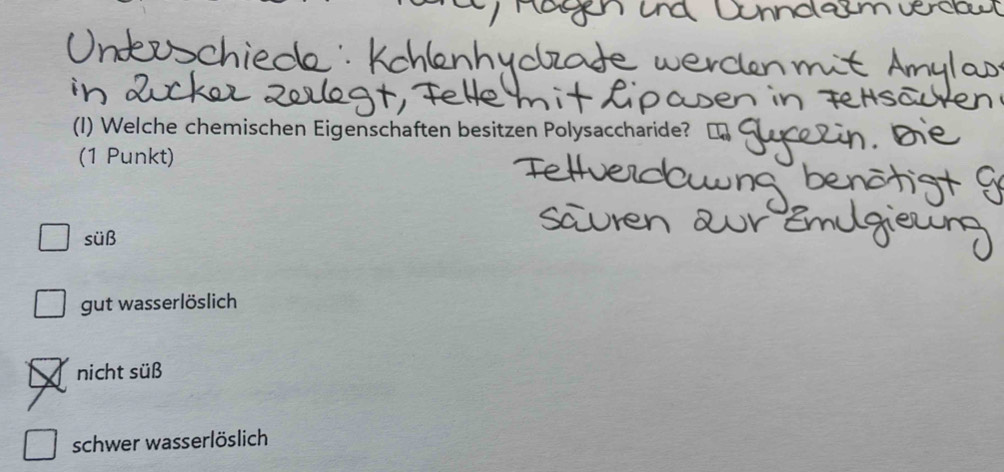 Magen und Dünndarm verdaut
Unterschiede: Kohlenhydrate werden mit Amylas
in Zucker zerlegt, Fette mit Lipasen in Fettsäuren
(I) Welche chemischen Eigenschaften besitzen Polysaccharide? Glycerin. Die
(1 Punkt)
Fettverdauung benötigt G
säuren zur Emulgierung
süß
gut wasserlöslich
nicht süß
schwer wasserlöslich